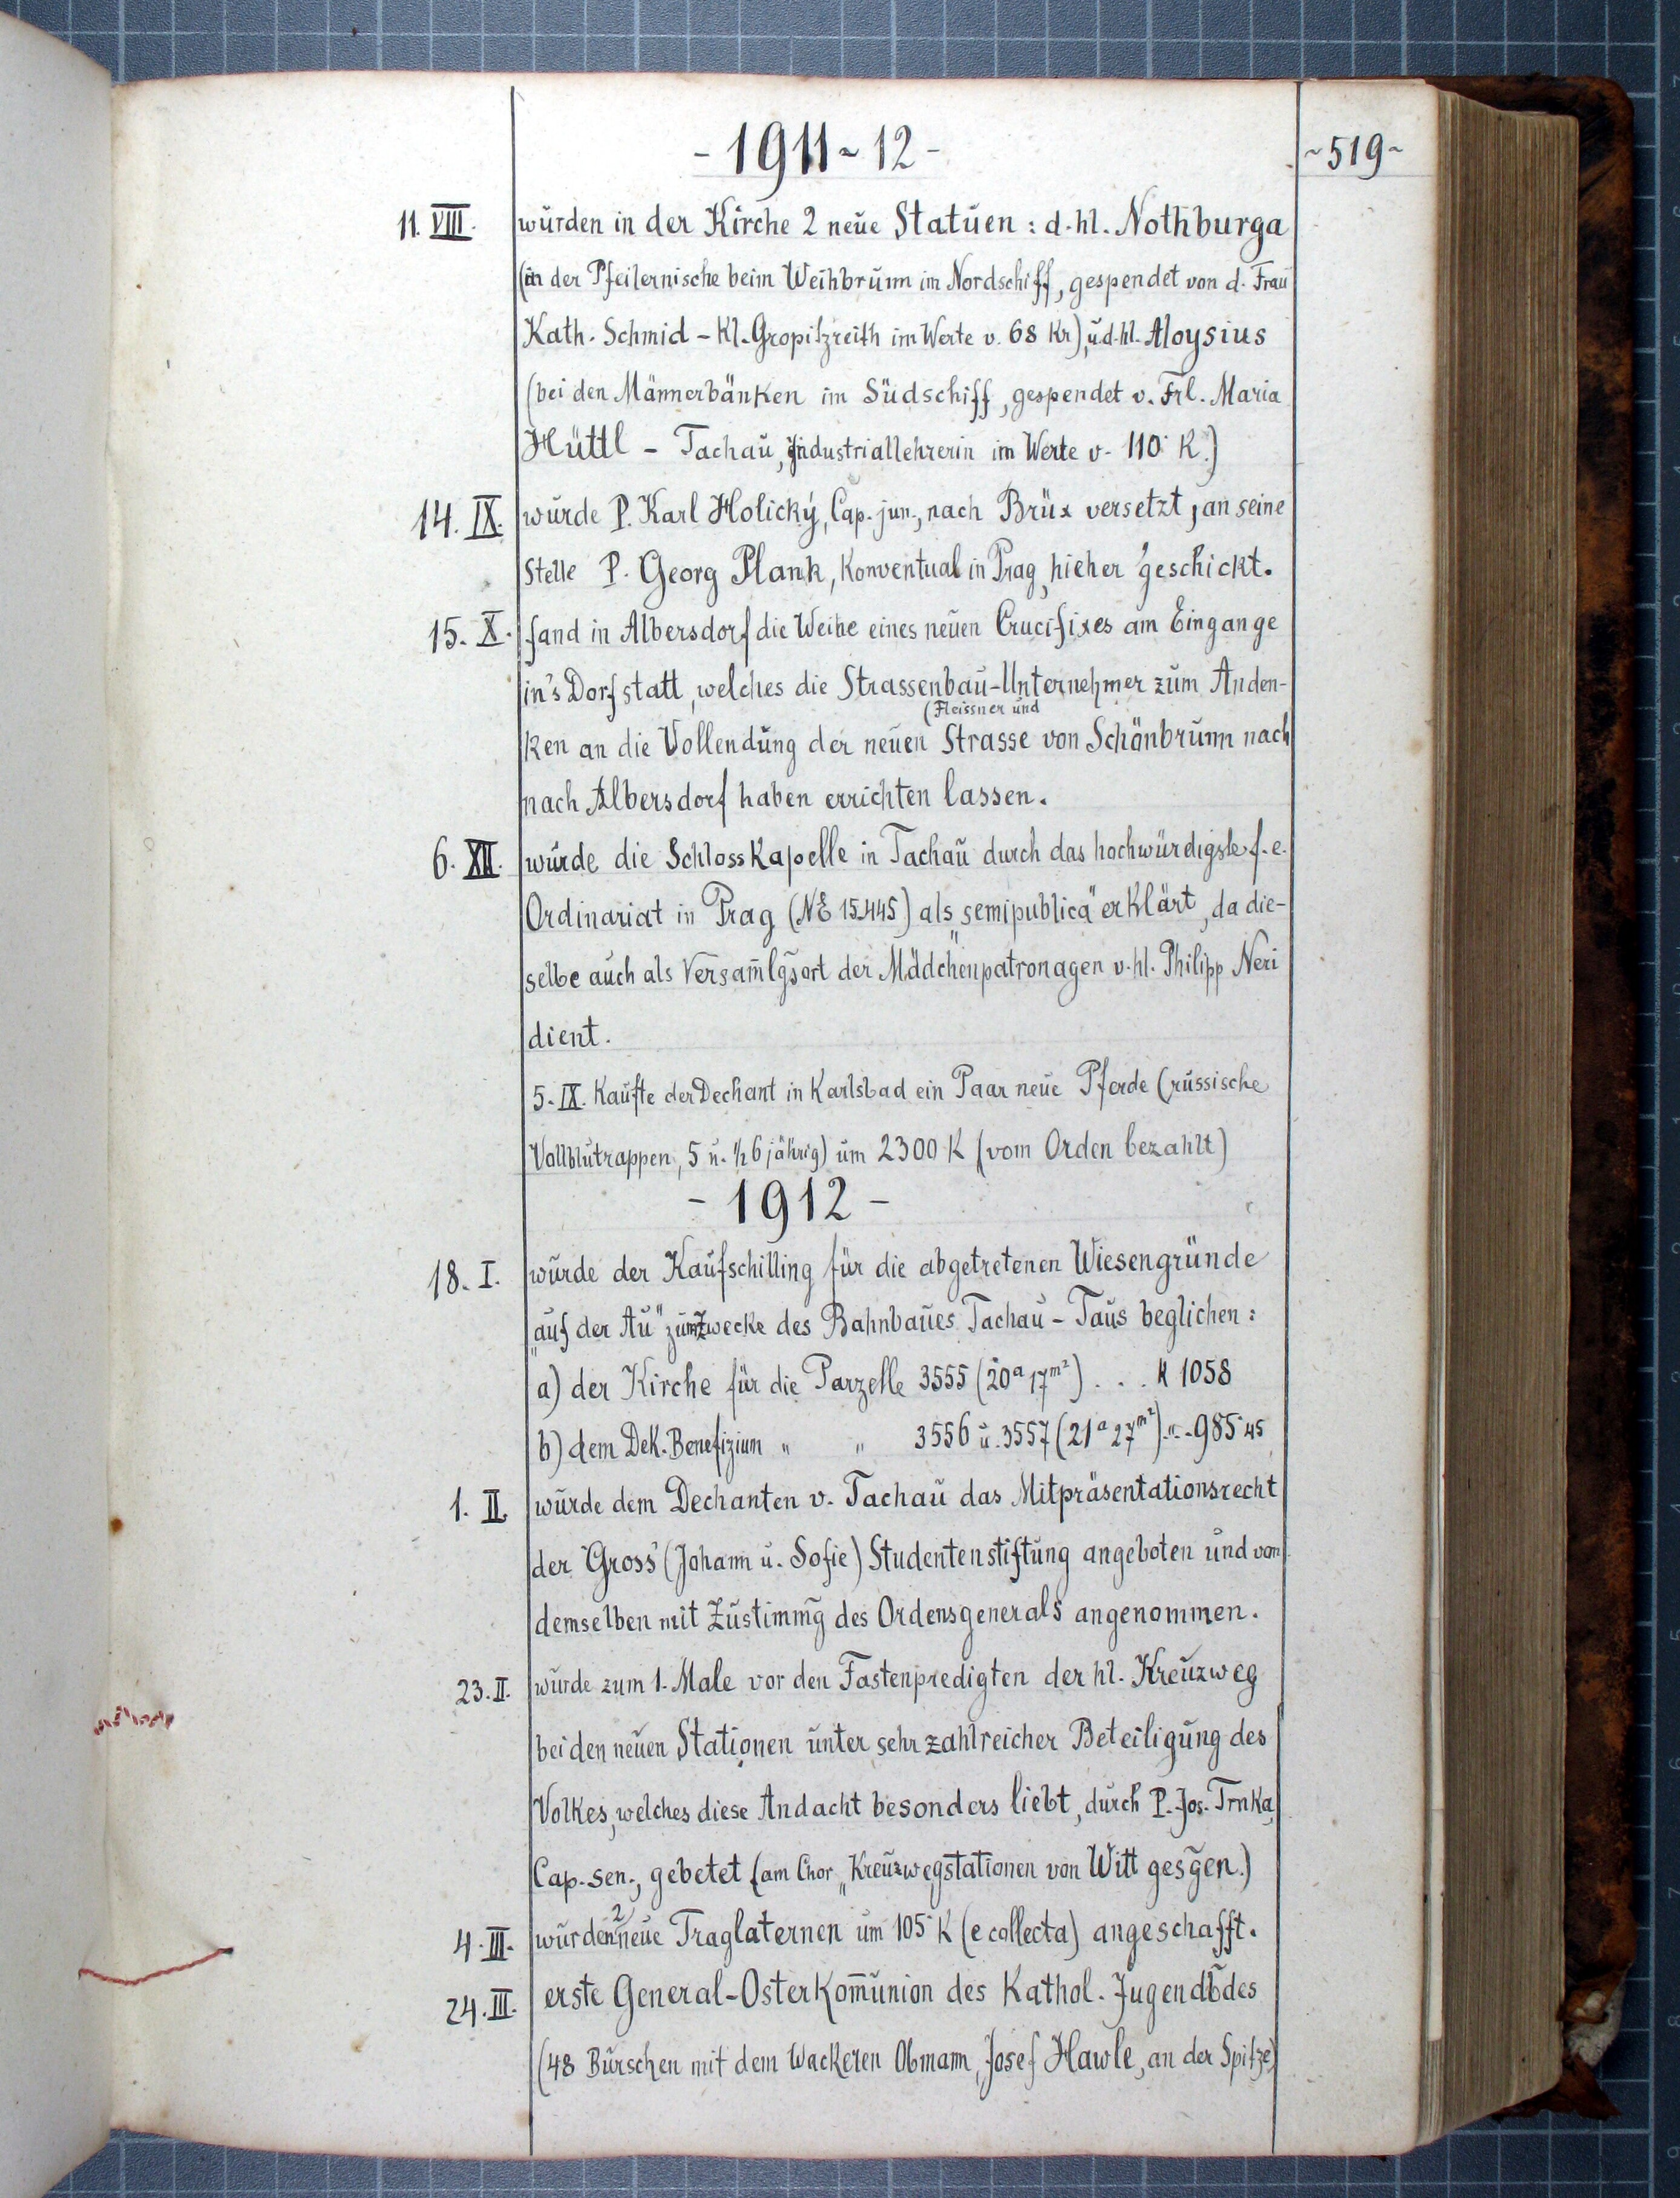 - 1911 ~ 12 -
~ 519 ~
11. VIII. wurden in der Kirche 2 neue Statuen : d. hl. Nothburga
(in der Pfeilernische beim Weihbrunn im Nordschiff, gespendet von d. Frau
Kath. Schmid - Kl. Gropitzreith im Werte v. 68 Kr), u. d. hl. Aloysius
(bei den Männerbänken im Südschiff, gespendet v. Frl. Maria
Hüttl - Tachau, Industriallehrerin im Werte v. 110 K.)
14. IX. wurde P. Karl Holický, Cap. jun., nach Brüx versetzt, an seine
Stelle P. Georg Plank, Konventual in Prag, hieher geschickt.
15. X. fand in Albersdorf die Weihe eines neuen Crucifixes am Eingange
in's Dorf statt, welches die Strassenbau-Unternehmer zum Anden-
(Fleissner und
ken an die Vollendung der neuen Strasse von Schönbrunn nach
nach Albersdorf haben errichten lassen.
6. XII. wurde die Schlosskapelle in Tachau durch das hochwürdigste f. e.
Ordinariat in Prag (NE 15.445) als „semipublica" erklärt, da die-
selbe auch als Versam̄lg̃sort der Mädchenpatronagen v. hl. Philipp Neri
dient.
5. IX. Kaufte der Dechant in Karlsbad ein Paar neue Pferde (russische
Vollblutrappen, 5 u. ½ 6 jährig) um 2300 K (vom Orden bezahlt)
- 1912 -
18. I. wurde der Kaufschilling für die abgetretenen Wiesengründe
„auf der Au" zum Zwecke des Bahnbaues Tachau - Taus beglichen :
a) der Kirche für die Parzelle 3555 (20ª 17m²) . . . K 1058
b) dem Dek. Benefizium " " 3556 u. 3557 (21ª 27m²) . " . 985·45
1. II. wurde dem Dechanten v. Tachau das Mitpräsentationsrecht
der "Gross" (Johann u. Sofie) Studentenstiftung angeboten und von
demselben mit Zustimmg̃ des Ordensgenerals angenommen.
23. II. wurde zum 1. Male vor den Fastenpredigten der hl. Kreuzweg
bei den neuen Stationen unter sehr zahlreicher Beteiligung des
Volkes, welches diese Andacht besonders liebt, durch P. Jos. Trnka,
Cap. sen., gebetet (am Chor „Kreuzwegstationen von Witt gesg̃en.)
4. III. wurden 2 neue Traglaternen um 105 K (e collecta) angeschafft.
24. III. erste General-Osterkom̄union des Kathol. Jugendb̃des
(48 Burschen mit dem wackeren Obmann, Josef Hawle, an der Spitze)